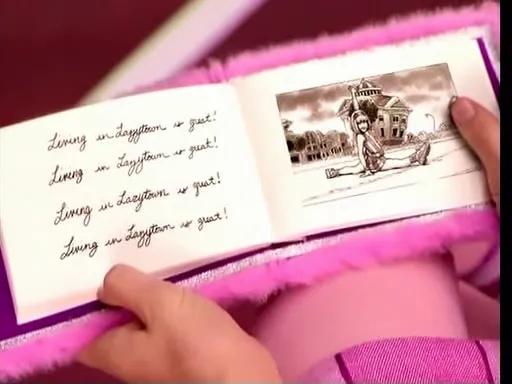 Living in Lazytown is great!
Living in Lazytown is great!
Living in Lazytown is great!
Living in Lazytown is great!